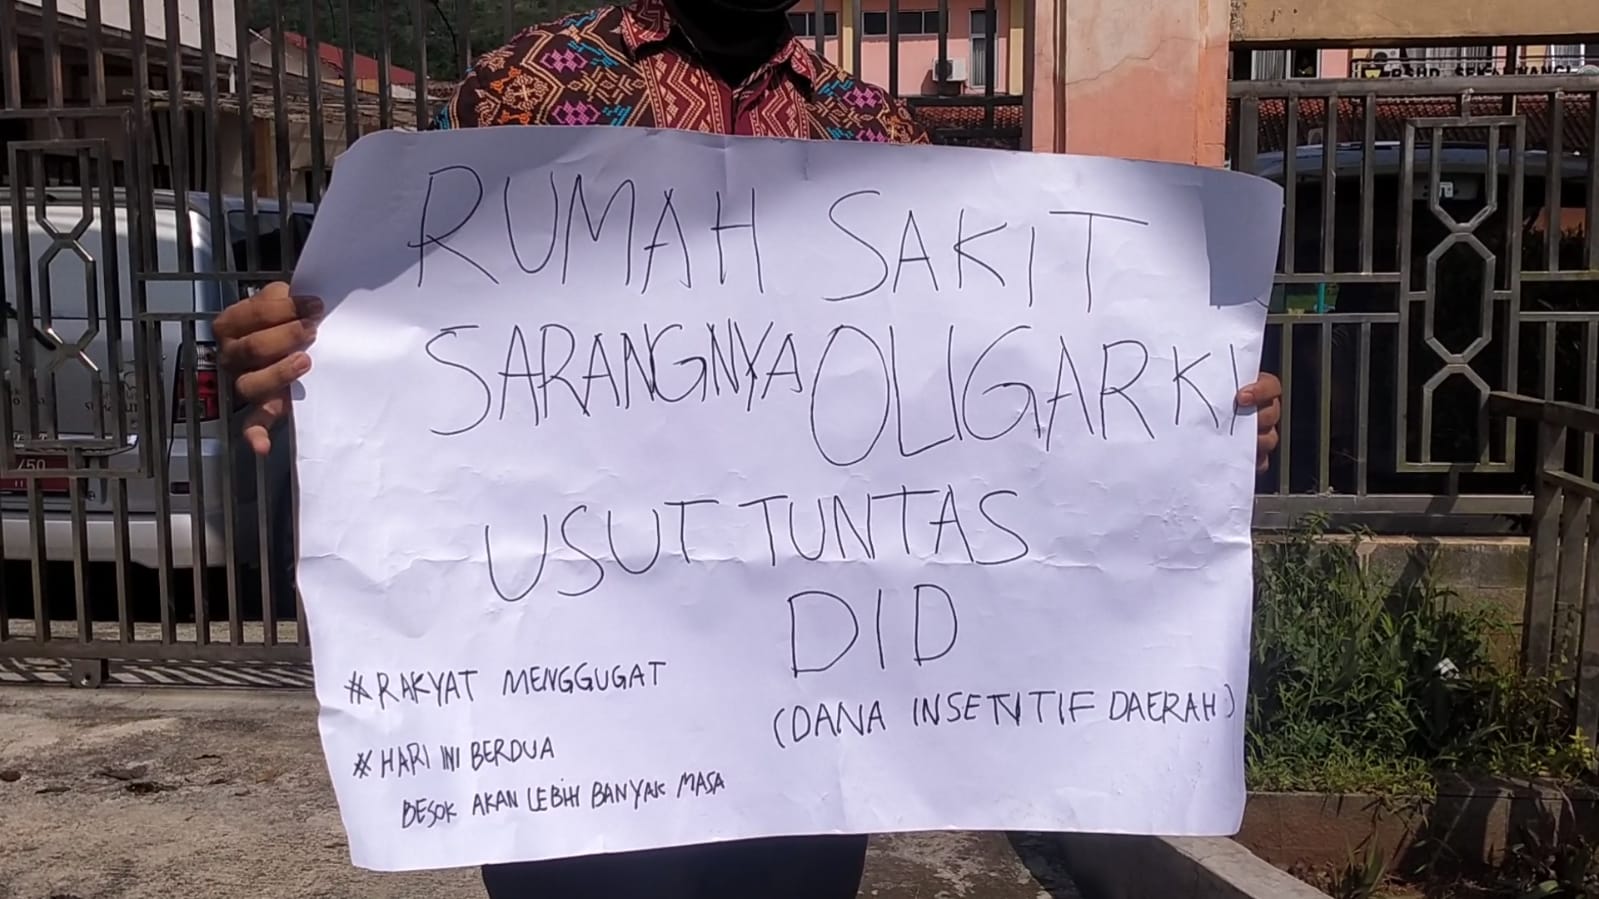 RUMAH SAKIT
SARANGNYA OLIGARKI
USUT TUNTAS
DID
(DANA INSETNTIF DAERAH)
#RAKYAT MENGGUGAT
#HARI INI BERDUA
BESOK AKAN LEBIH BANYAK MASA
450